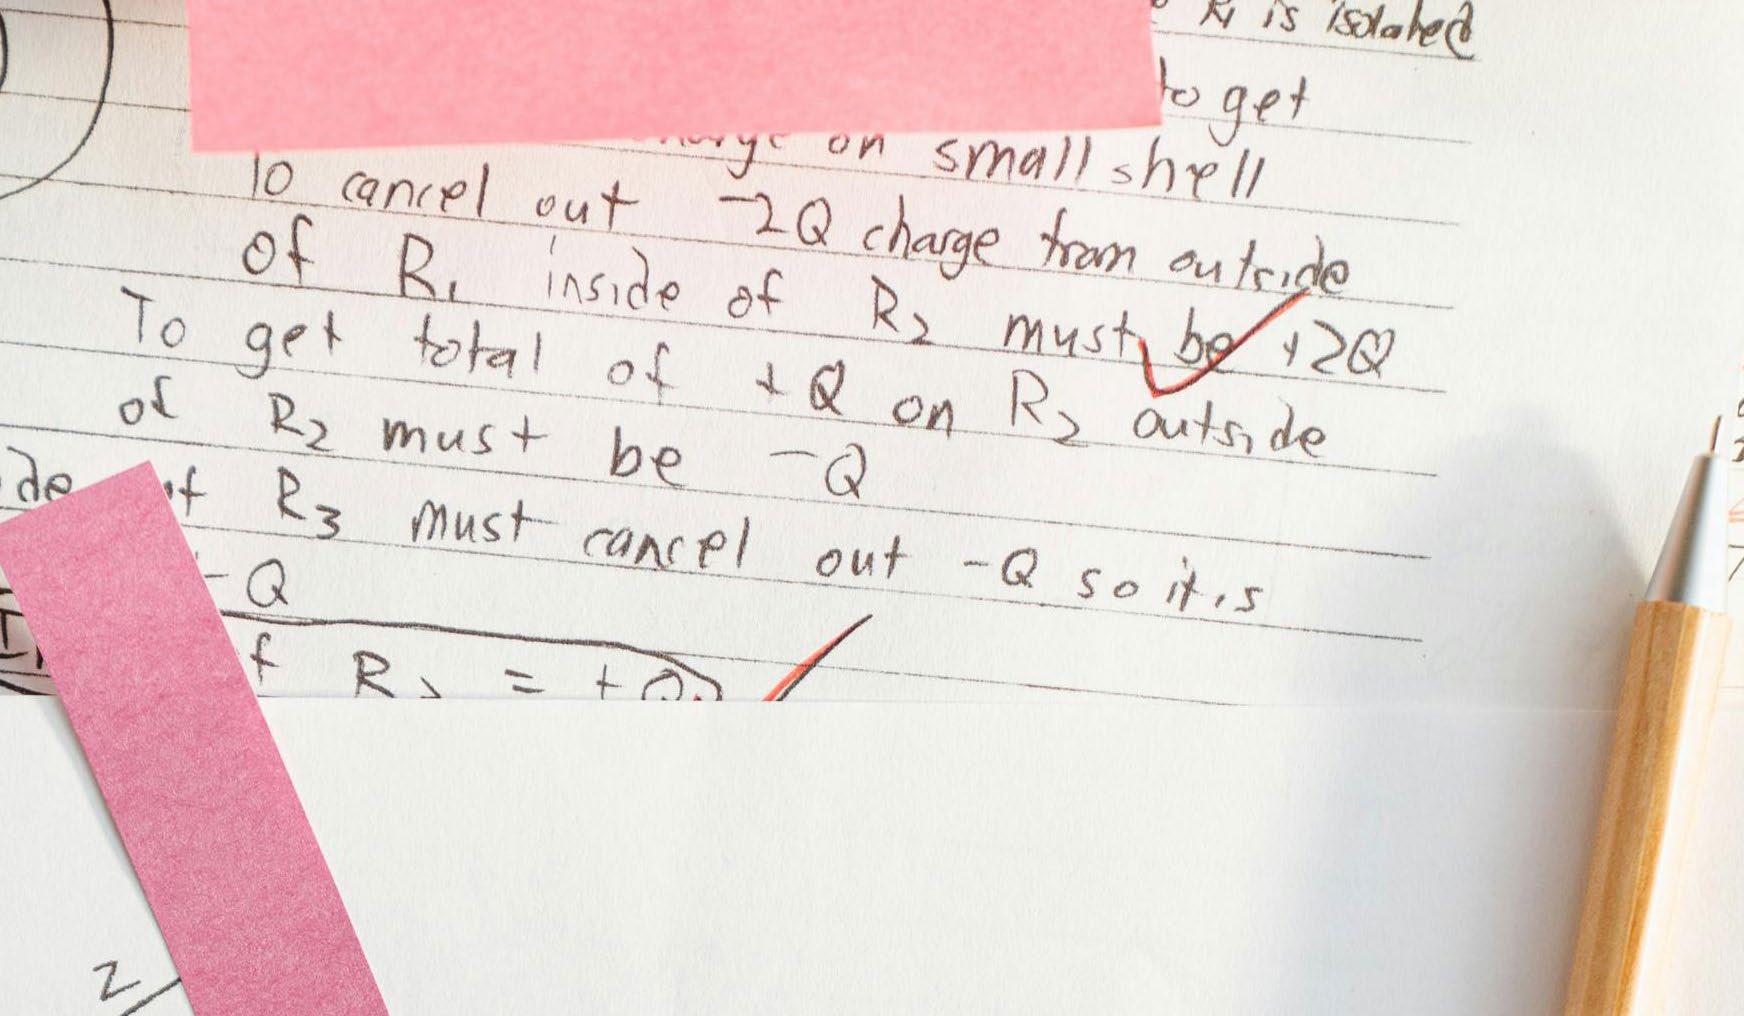 is isolated
to get
on small shell
To cancel out -2Q charge from outside
of R₁ inside of R₂ must be +2Q
To get total of +Q on R₂ outside
of R₂ must be -Q
de of R₃ must cancel out -Q so it is
-Q
f R₂ = +Q
2